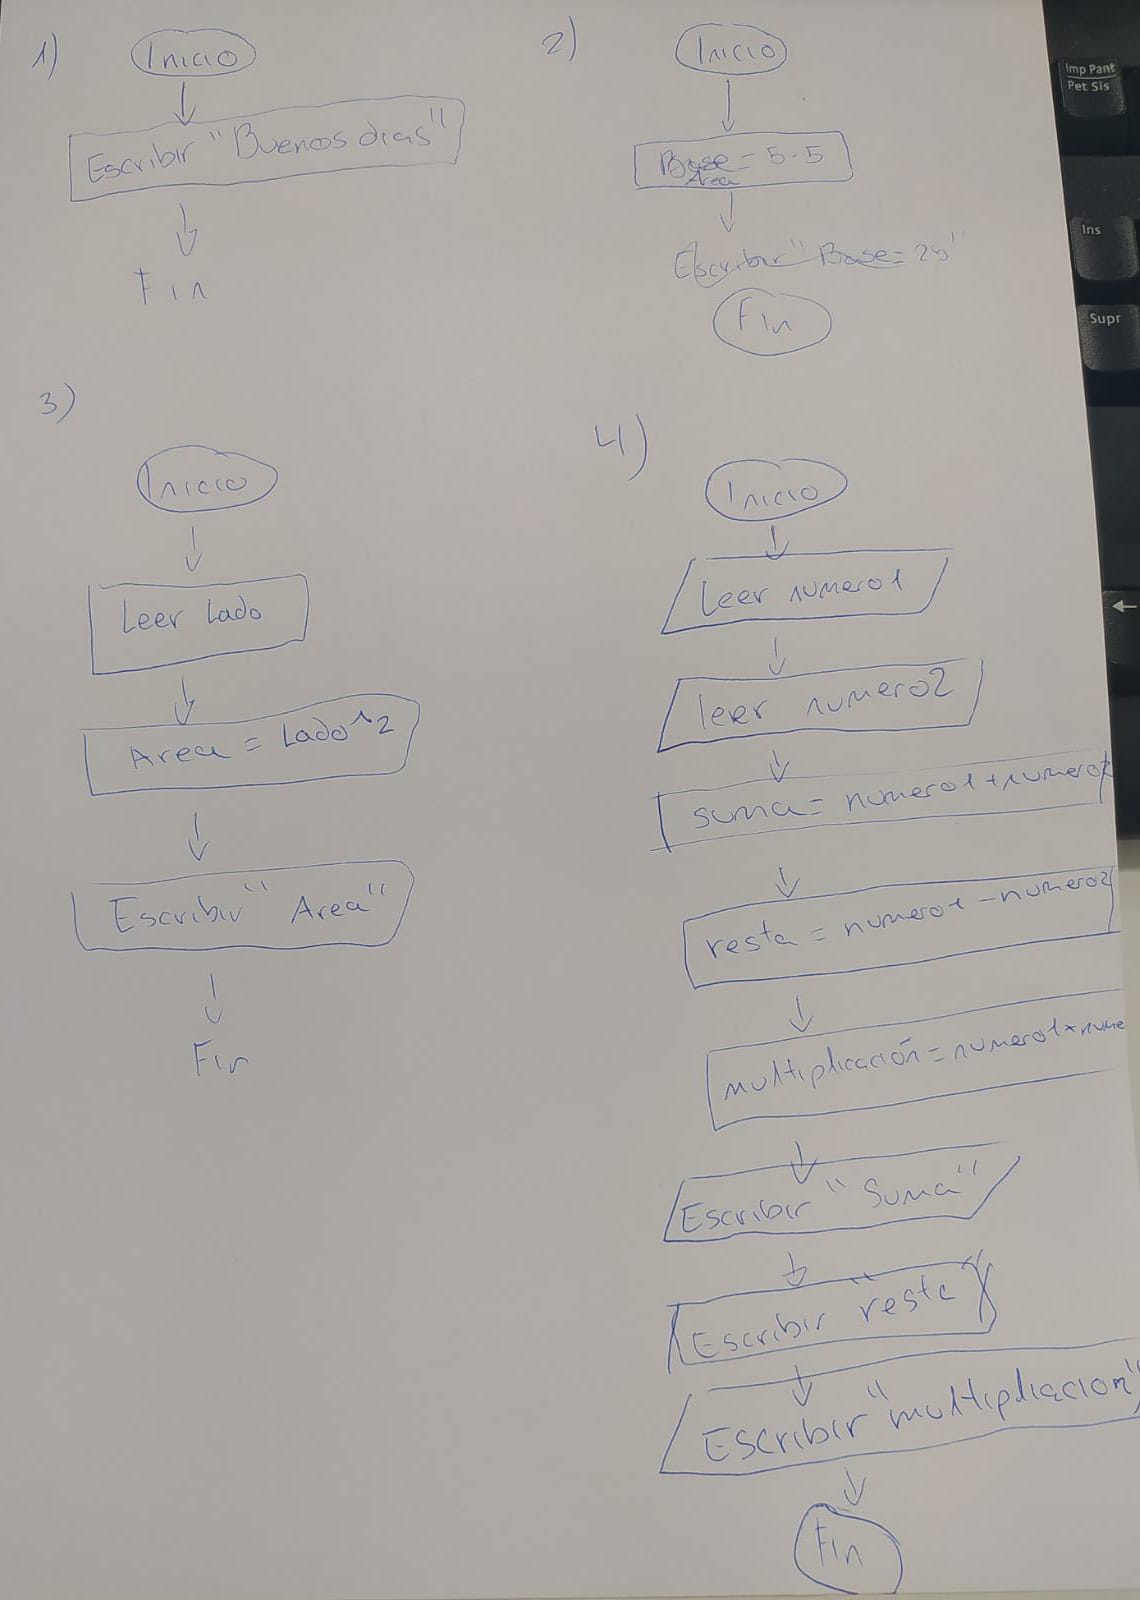 1)
Inicio
Escribir "Buenos dias"
Fin
2)
Inicio
Base = 5.5
Area
Escribir "Base = 25"
Fin
3)
Inicio
Leer Lado
Area = Lado^2
Escribir "Area"
Fin
4)
Inicio
Leer numero1
leer numero2
suma = numero1 + numero2
resta = numero1 - numero2
multiplicación = numero1 * nume
Escribir "Suma"
Escribir "resta"
Escribir "multiplicacion"
Fin
Imp Pant
Pet Sis
Ins
Supr
←